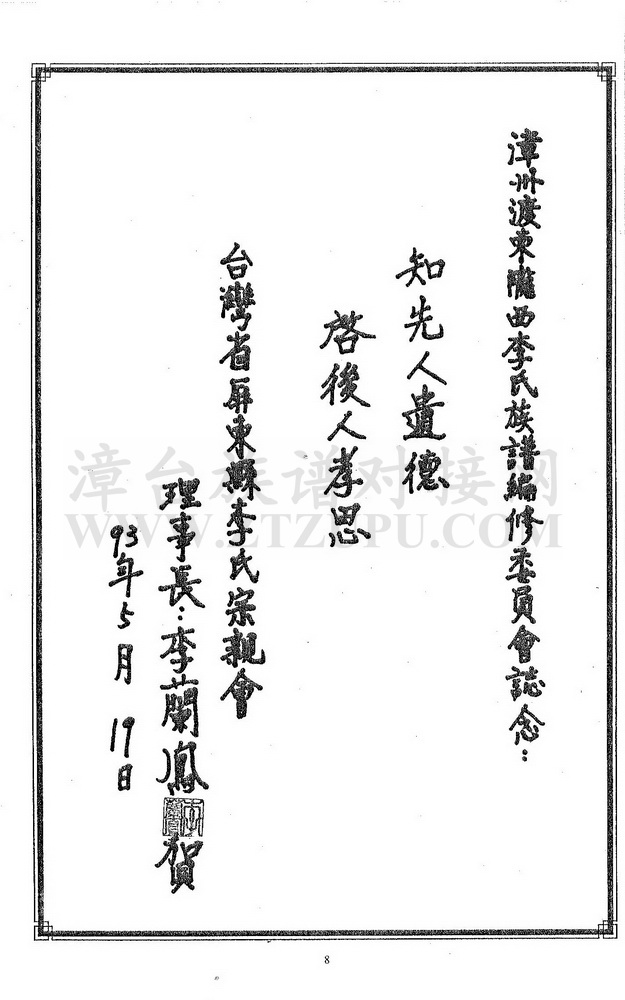 漳州渡東隴西李氏族譜編修委員會誌念：
知先人遺德
啓後人孝思
台灣省屏東縣李氏宗親會
理事長：李蘭鳳 賀
93年5月19日
漳台族谱对接网
WWW.ZTZUPU.COM
8